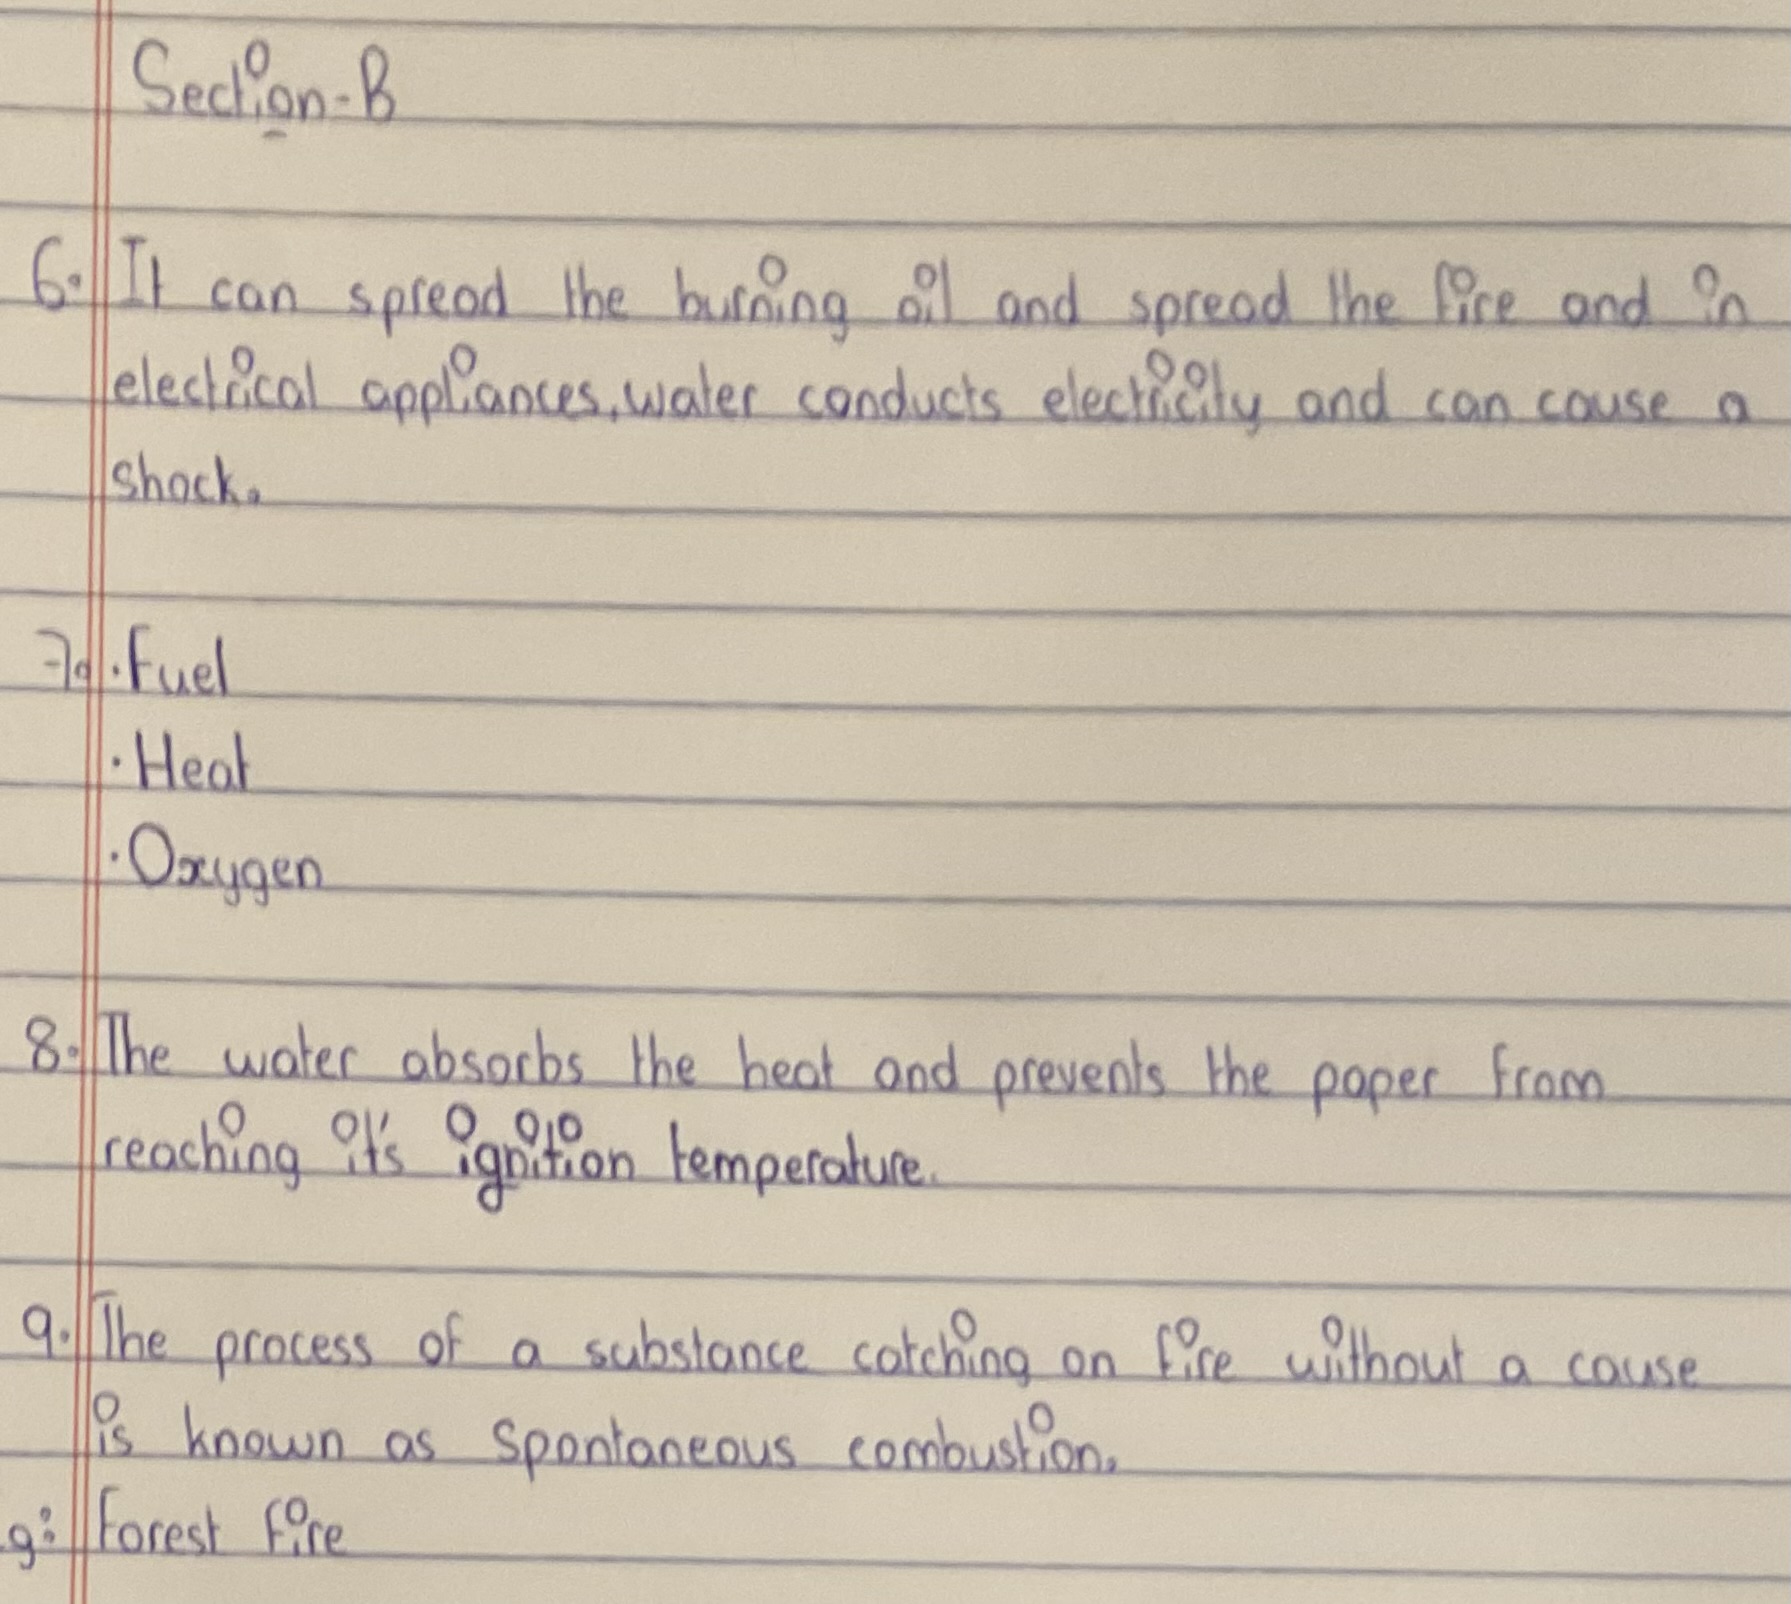 Section-B
6. It can spread the burning oil and spread the fire and in
electrical appliances, water conducts electricity and can cause a
shock.
7. • Fuel
• Heat
• Oxygen
8. The water absorbs the heat and prevents the paper from
reaching it's ignition temperature.
9. The process of a substance catching on fire without a cause
is known as spontaneous combustion.
.g: Forest fire